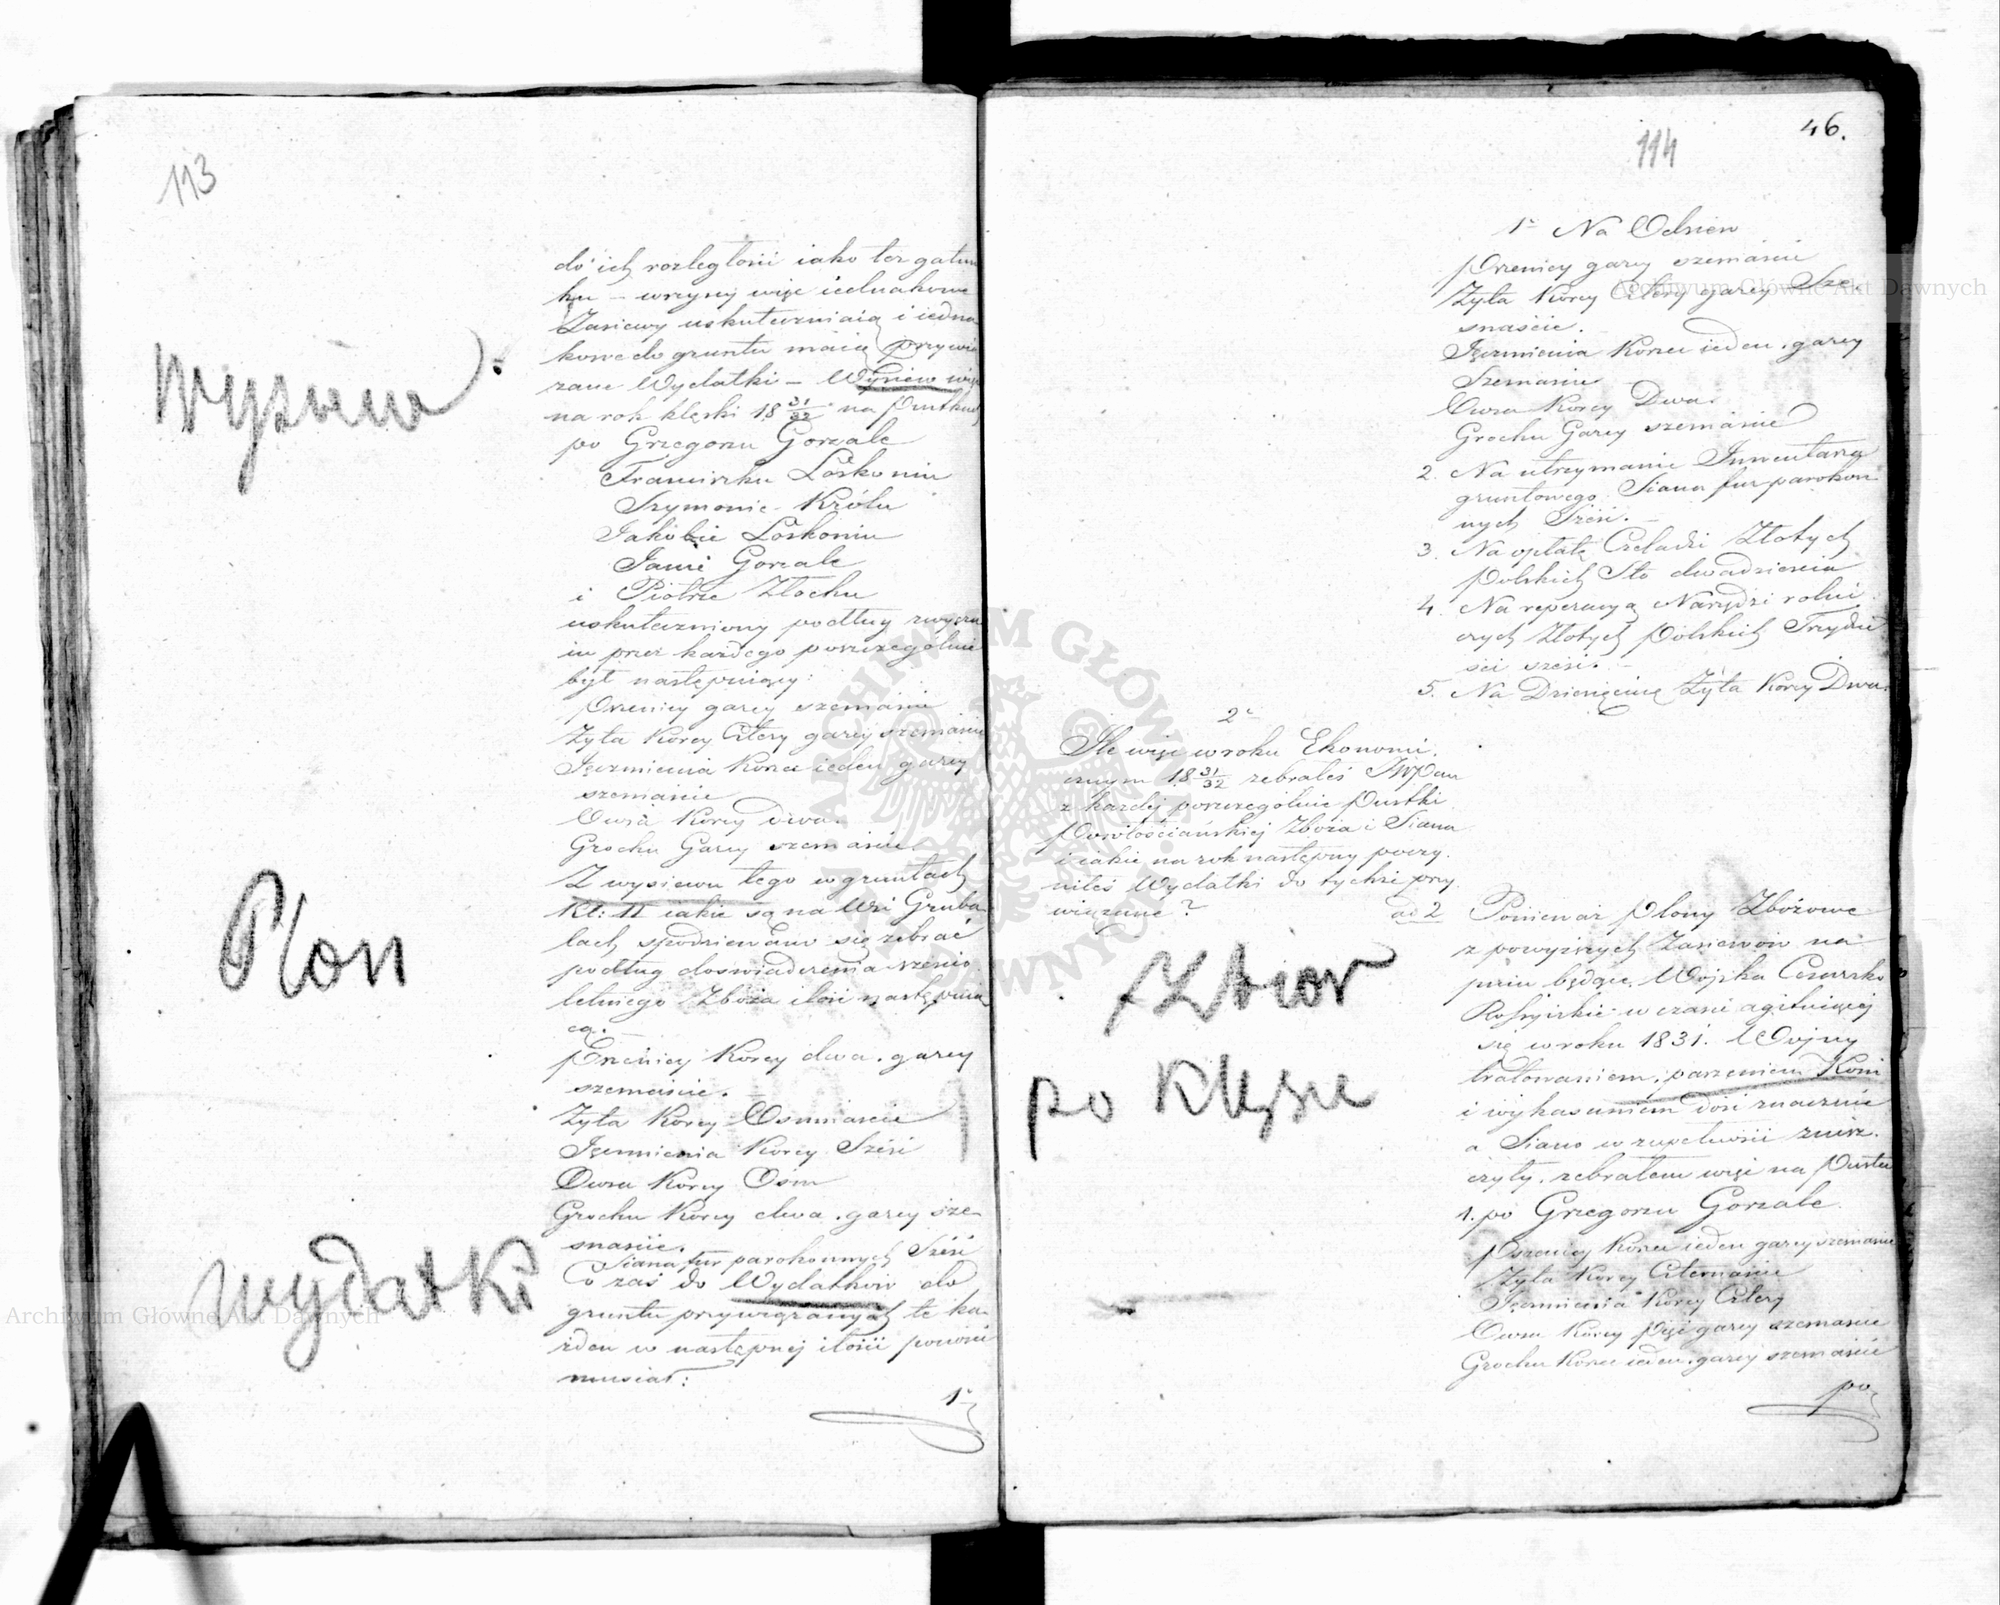 113
do ich rozległości iako też gatun
ku – wszyscy więc iednakowe
Zasiewy uskuteczniaią i iedna
kowe do gruntu maią przywią
zane Wydatki – Wysiew więc
na rok klęski 18 31/32 na Pustkach
po Grzegorzu Gorzale
Franciszku Loskoniu
Szymonie Królu
Jakóbie Loskoniu
Janie Gorzale
i Piotrze Złochu
uskuteczniony podług zwycza
iu przez każdego poszczególnie
był następuiący:
Pszenicy garcy szesnaście
Żyta Korcy Cztery garcy szesnaście
Jęczmienia Korzec ieden garcy
szesnaście
Owsa Korcy dwa.
Grochu Garcy szesnaście
Z wysiewu tego w gruntach
Kl: II iakie są na Wsi Gruba
lach spodziewano się zebrać
podług doświadczenia sześcio
letniego Zboża ilość następuią
cą. –
Pszenicy Korcy dwa. garcy
szesnaście.
Żyta Korcy Osmnaście
Jęczmienia Korcy Sześć
Owsa Korcy Ośm
Grochu Korcy dwa. garcy sze-
snaście.
Siana fur parokonnych Sześć
Co zaś do Wydatków do
gruntu przywiązanych te ka-
żden w następnej ilości ponosić
musiał:
1
Wysiew
Plon
Wydatki
46.
114
1. Na Odsiew
Pszenicy garcy szesnaście
Żyta Korcy Cztery garcy Sze
snaście.
Jęczmienia Korzec ieden. garcy
Szesnaście
Owsa Korcy Dwa.
Grochu Garcy szesnaście
2. Na utrzymanie Inwentarza
gruntowego Siana fur parokon
nych Sześć. –
3. Na opłatę Czeladzi Złotych
Polskich Sto dwadzieścia
4. Na reperacyą Narzędzi rolni
czych Złotych Polskich Trzydzie
ści sześć. –
5. Na Dziesięcinę Żyta Korcy Dwa.
2
Ile więc w roku Ekonomi.
cznym 18 31/32 zebrałeś JWPan
z każdej poszczególnie Pustki
Powłościańskiej Zboża i Siana
i iakie na rok następny poczy.
niłeś Wydatki do tychże przy.
wiązane?
ad 2 Ponieważ Plony Zbożowe
z powyższych Zasiewów na
pniu będące Wojska Cesarsko
Rossyjskie w czasie agituiącej
się w roku 1831. Wojny
tratowaniem, parzeniem Koni
i wykaszaniem dość znacznie
a Siano w zupełności znisz.
czyły. zebrałem więc na Pustce
1. po Grzegorzu Gorzale.
Pszenicy Korzec ieden garcy szesnaście
Żyta Korcy Czternaście
Jęczmienia Korcy Cztery
Owsa Korcy Pięć garcy szesnaście
Grochu Korzec ieden. garcy szesnaście
po
Zbior
po Klęsce
Archiwum Główne Akt Dawnych
Archiwum Główne Akt Dawnych
ARCHIWUM GŁÓWNE AKT DAWNYCH